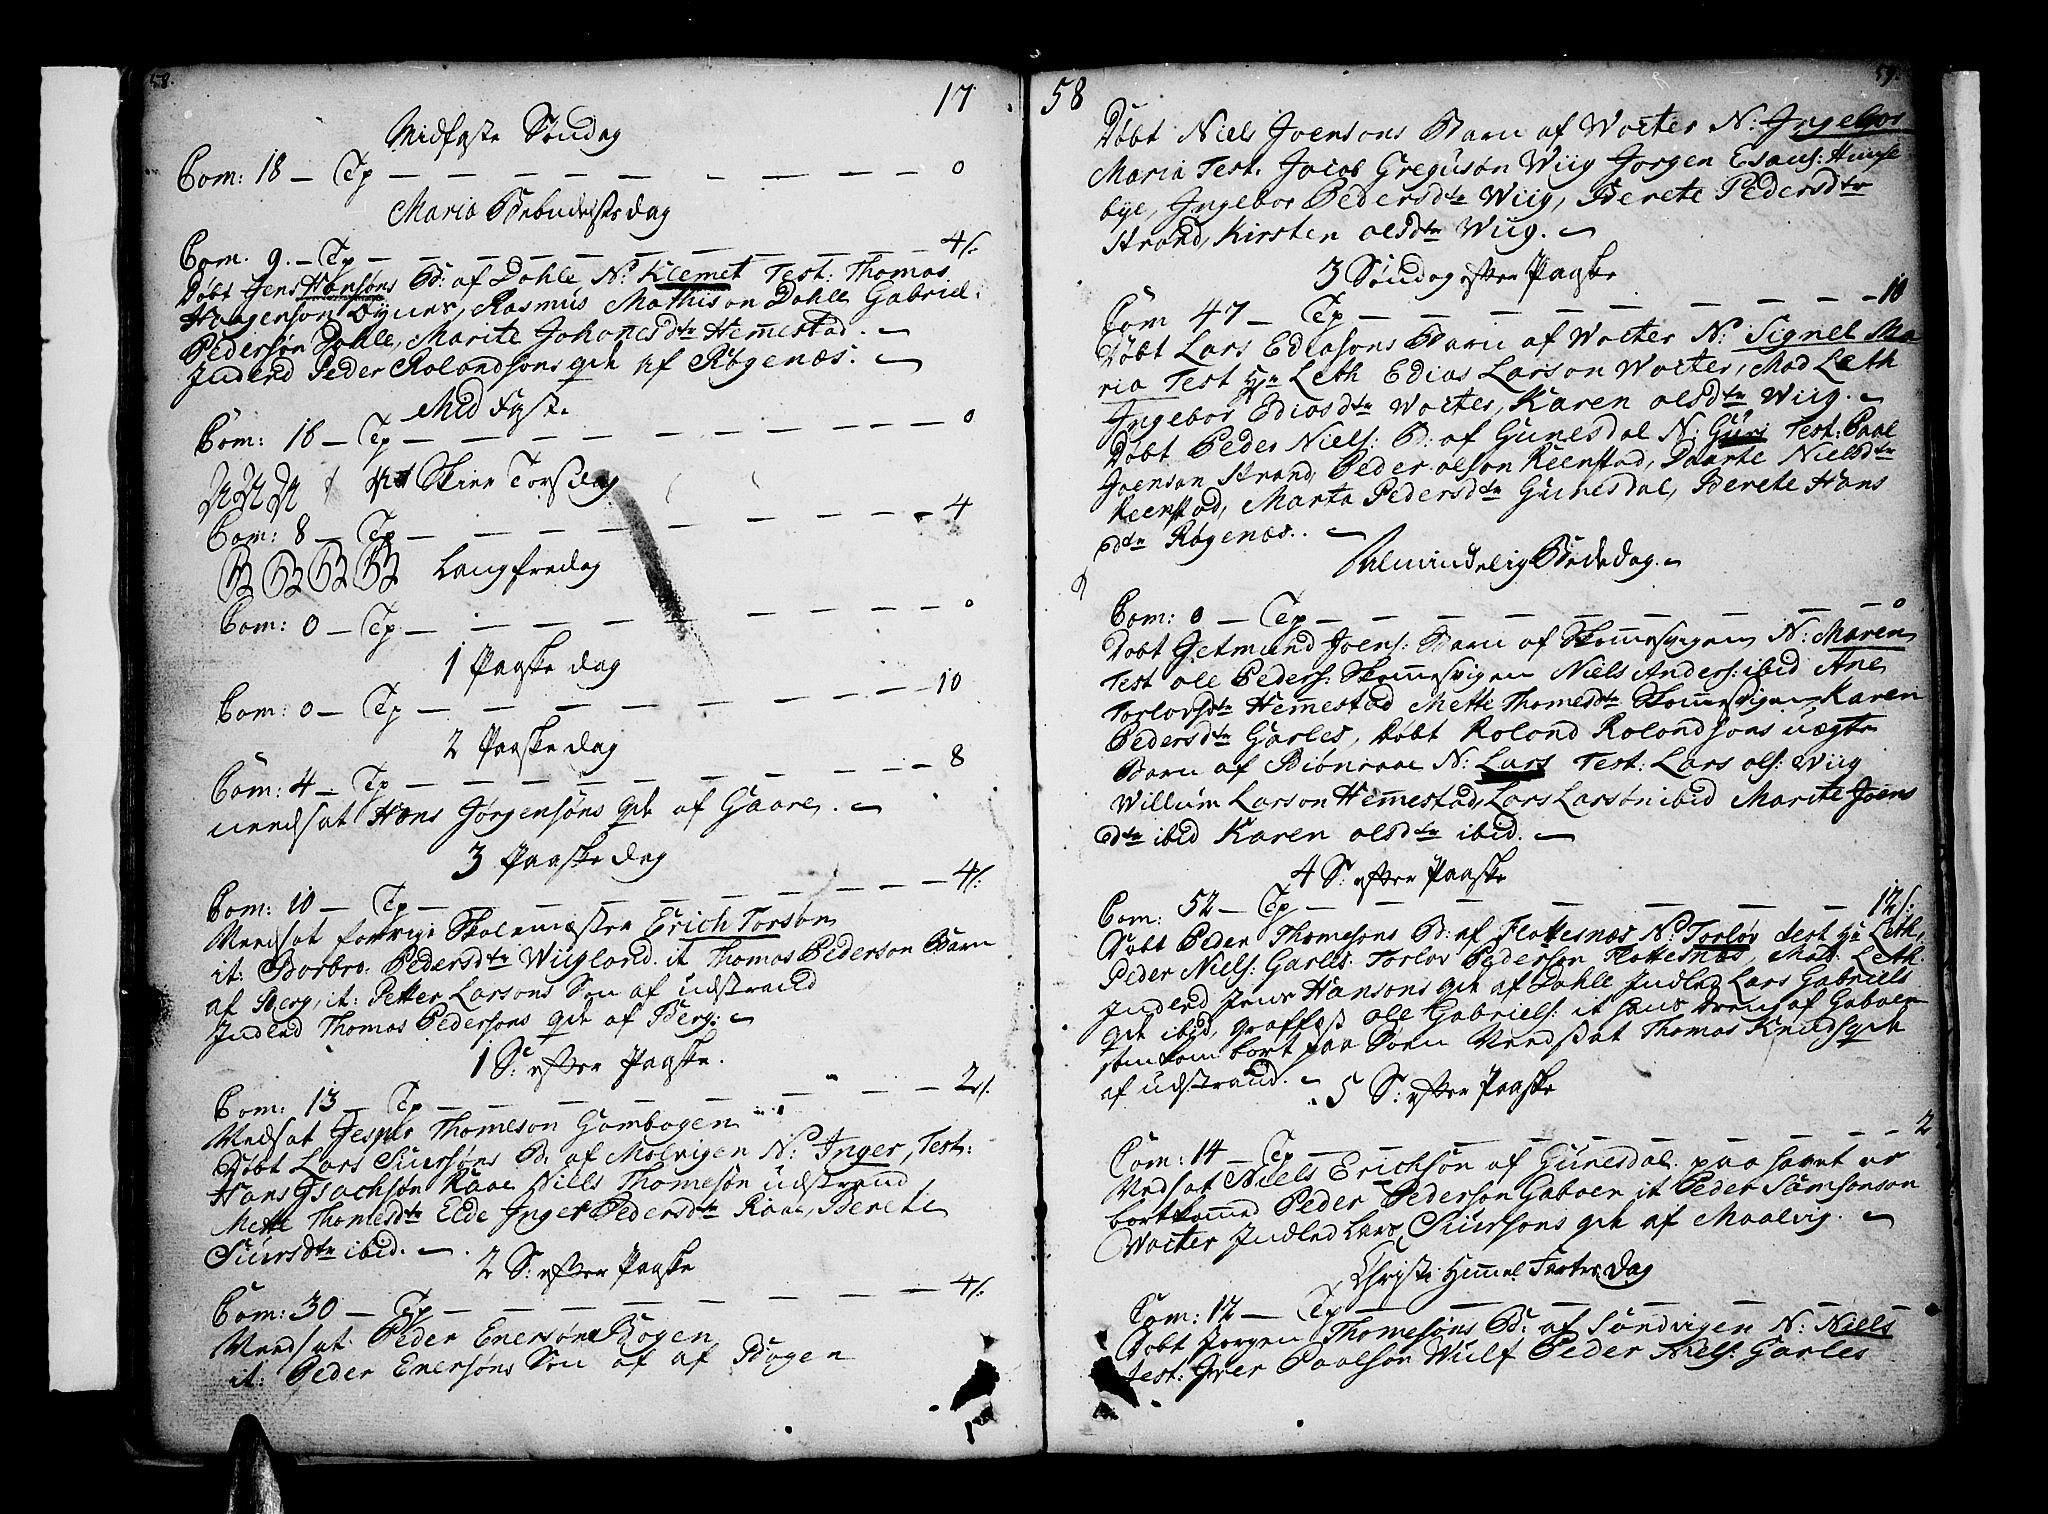 58.
17
Midfaste Søndag
Com: 18 — Tp — — — — — — — — 0
Maria Bebudelses dag
Com. 9. — Tp — — — — — — — — 4/:
Døbt Jens Hansøns B: af Dahle, N: Klemet Test: Thomas
Haagenson Dyrnes, Rasmus Mathison Dahle Gabriel
Pedersøn Dahle, Marite Johanesdtr Hemestad.
Indled Peder Rolandsøns qde af Røgenæs.
Mid Fast.
Com: 16 — Tp — — — — — — — — 0
Skier Torsdag
Com: 8 — Tp — — — — — — — — 4
Langfredag
Com: 0 — Tp — — — — — — — — 0
1 Paaske dag
Com: 0 — Tp — — — — — — — — 10
2 Paaske dag
Com: 4 — Tp — — — — — — — — 8
nedsat Hans Jørgensøns qde af Gaare.
3 Paaske dag
Com: 10 — Tp — — — — — — — — 4/:
Nedsat forrige Skolemester Erich Torsøn
it: Borbro Pedersdtr Wiigland. it Thomas Pederson Barn
af Berg, it: Petter Larsons Søn af udstrand
Indled Thomas Pedersons qde af Berg:
1 S: efter Paaske.
Com: 13 — Tp — — — — — — — — 2/:
Nedsat Jesper Thomeson Gambogen
Døbt Lars Siursøns B: af Molvigen N: Inger, Test:
Hans Isachsøn Raae Niels Thomesøn udstrand
Mette Thomesdtr Elde Inger Pedersdtr Raae, Berete
Siursdtr ibid.
2 S: efter Paaske
Com: 30 — Tp — — — — — — — — 4/:
Nedsat Peder Enersøn Bogen
it: Peder Enersøns Søn af af Bogen
58
59.
Døbt Niels Joensons Barn af Wolter N: Ingebor
Maria Test. Jacob Gregusøn Wiig Jørgen Esaus: Hunse
bye, Ingebor Pedersdtr Wiig, Berete Pedersdtr
Strand, Kirsten olsdtr Wiig.
3 Søndag efter Paaske
Com 47 — Tp — — — — — — — — 10
Døbt Lars Ediasons Barn af Wolter N: Signel Ma
ria Test Hr Leth Edias Larson Wolter, Mad Leth
Ingebor Ediasdtr Wolter, Karen olsdtr Wiig.
Døbt Peder Niels: B: af Gunesdal N: Guri Test: Paal
Joenson Strand, Peder olson Reenstad, Daarte Nielsdtr
Reenstad, Marta Pedersdtr Gunesdal, Berete Hans
dtr Røgenæs.
Almindelig Bededag.
Com: 0 — Tp — — — — — — — — 0
Døbt Jetmund Joens: Barn af Skomesvigen N: Maren
Test ole Peders: Skomesvigen Niels Anders: ibid Ane
Torlovsdtr Hemestad Mette Thomesdtr Skomesvigen Karen
Pedersdtr Garles, Døbt Roland Rolandsons uægte
Barn af Biønraae N: Lars Test: Lars ols: Wiig
Willum Larson Hemestad, Lars Larsøn ibid Marite Joens
dtr ibid Karen olsdtr ibid.
4 S: efter Paaske
Com: 52 — Tp — — — — — — — — 12/:
Døbt Peder Thomesons B: af Flottesnæs N: Torløv test Hr Leth,
Peder Niels: Garles. Torlov Pedersøn Flottesnæs, Mad. Leth
Indled Jens Hansons qde af Dahle Indled Lars Gabriels
qde ibid, Graffæst Ole Gabriels: it hans Dreng af Gaboen
som kom bort paa Søen Nedsat Thomas Knudsqde
af udstrand.
5 S: efter Paaske
Com: 14 — Tp — — — — — — — — 2
Nedsat Niels Erichsøn af Gunesdal. paa havet er
bortkommed Peder Pederson Gaboen it Peder Samsonson
Wolter Indled Lars Siursons qde af Maalvig.
Christi Himmel Farts Dag
Com: 12 — Tp — — — — — — — —
Døbt Jørgen Thomesøns B: af Sandvigen N: Niels
test: Iver Paalsøn Wulf Peder Niels: Garles